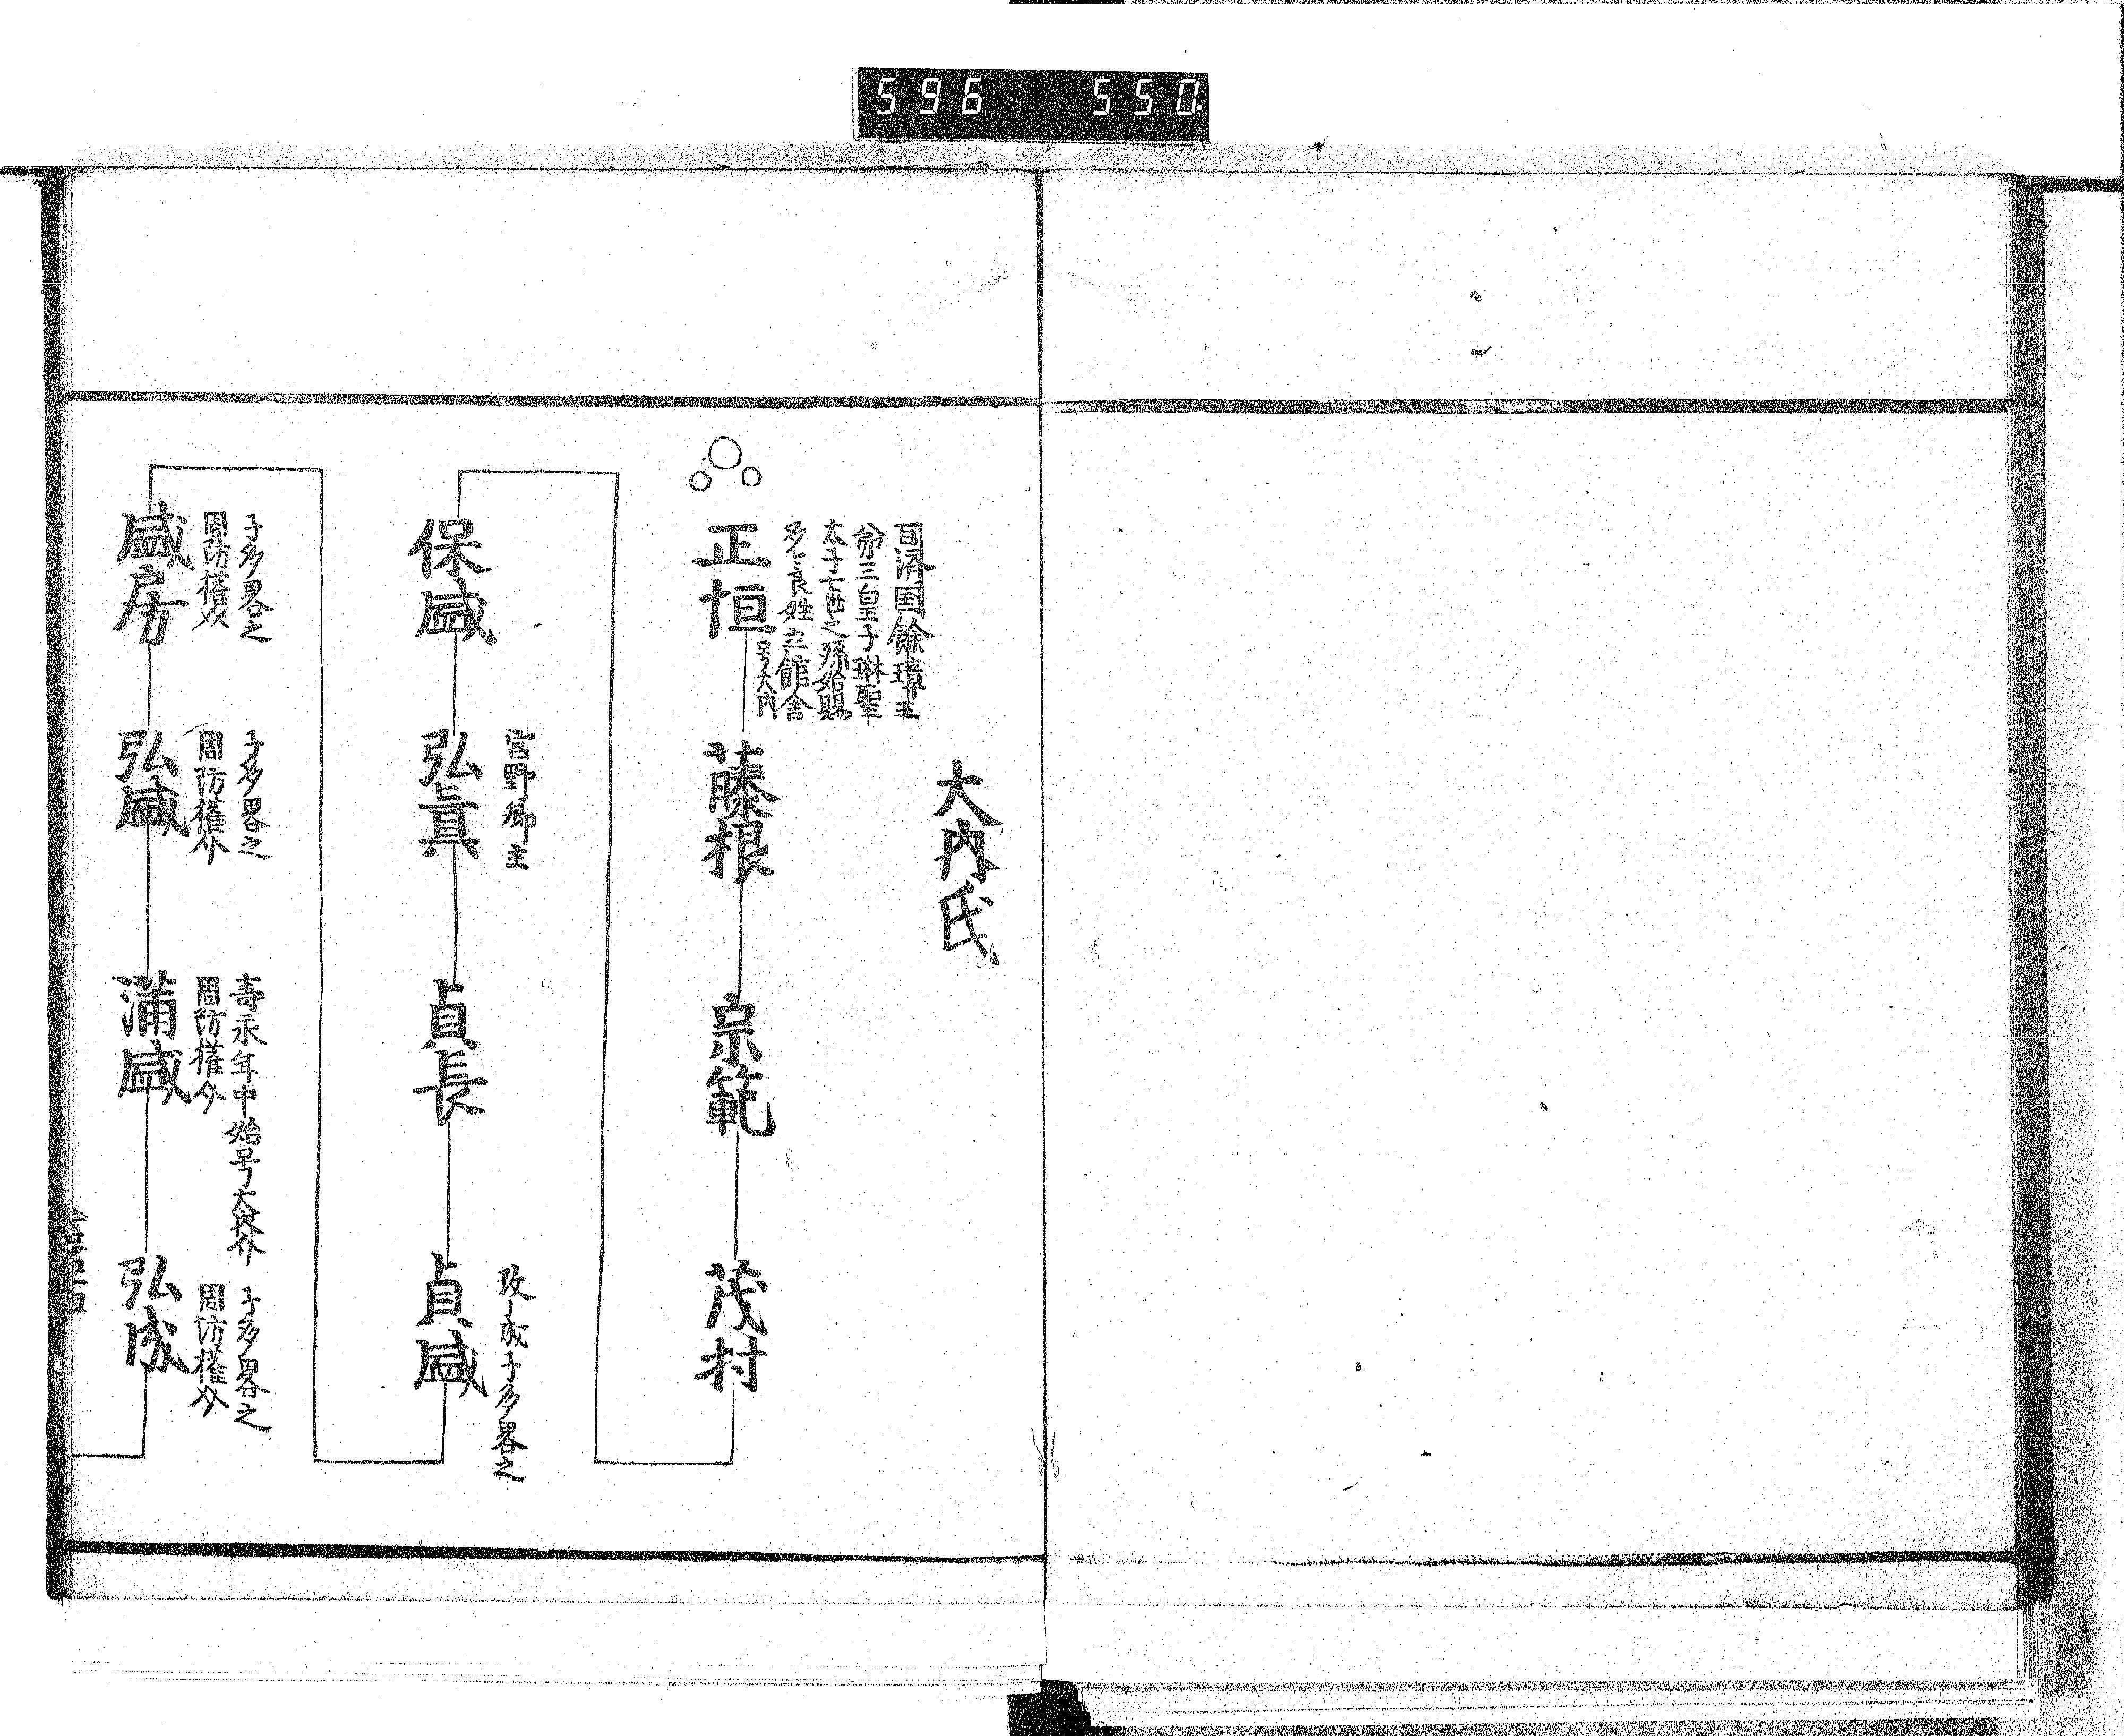 596 550.
大内氏
百済国餘璋王
㐧三皇子琳聖
太子七世之孫始賜
多々良姓立館舎
号大内
正恒
藤根
宗範
茂村
保盛
宮野郷主
弘真
貞長
改成子多畧之
貞盛
子多畧之
周防権介
盛房
子多畧之
周防権介
弘盛
壽永年中始号大内介
周防権介
満盛
子多畧之
周防権介
弘成